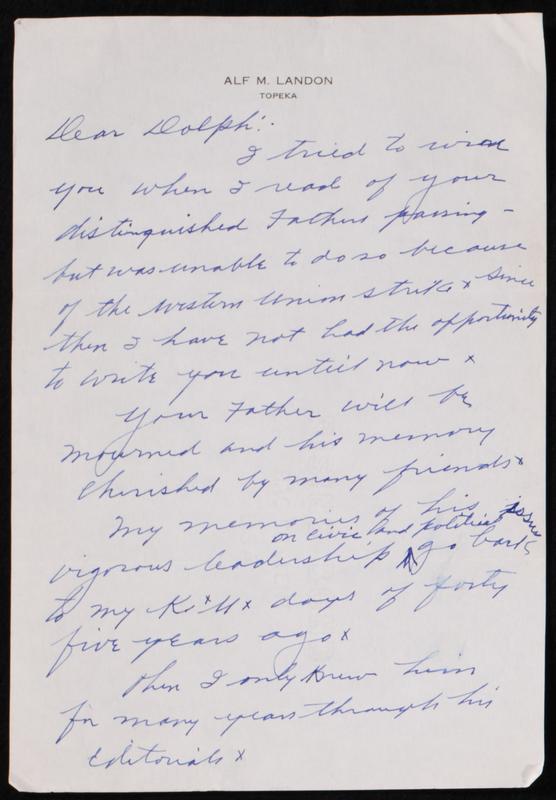 ALF M. LANDON
TOPEKA
Dear Dolph:
I tried to wire
you when I read of your
distinguished Fathers passing -
but was unable to do so because
of the Western Union strike x Since
then I have not had the opportunity
to write you untill now x
Your Father will be
mourned and his memory
cherished by many friends x
My memories of his
on civic and political issues
vigorous leadership go back
to my K x U x days of forty
five years ago x
Then I only knew him
for many years through his
editorials x